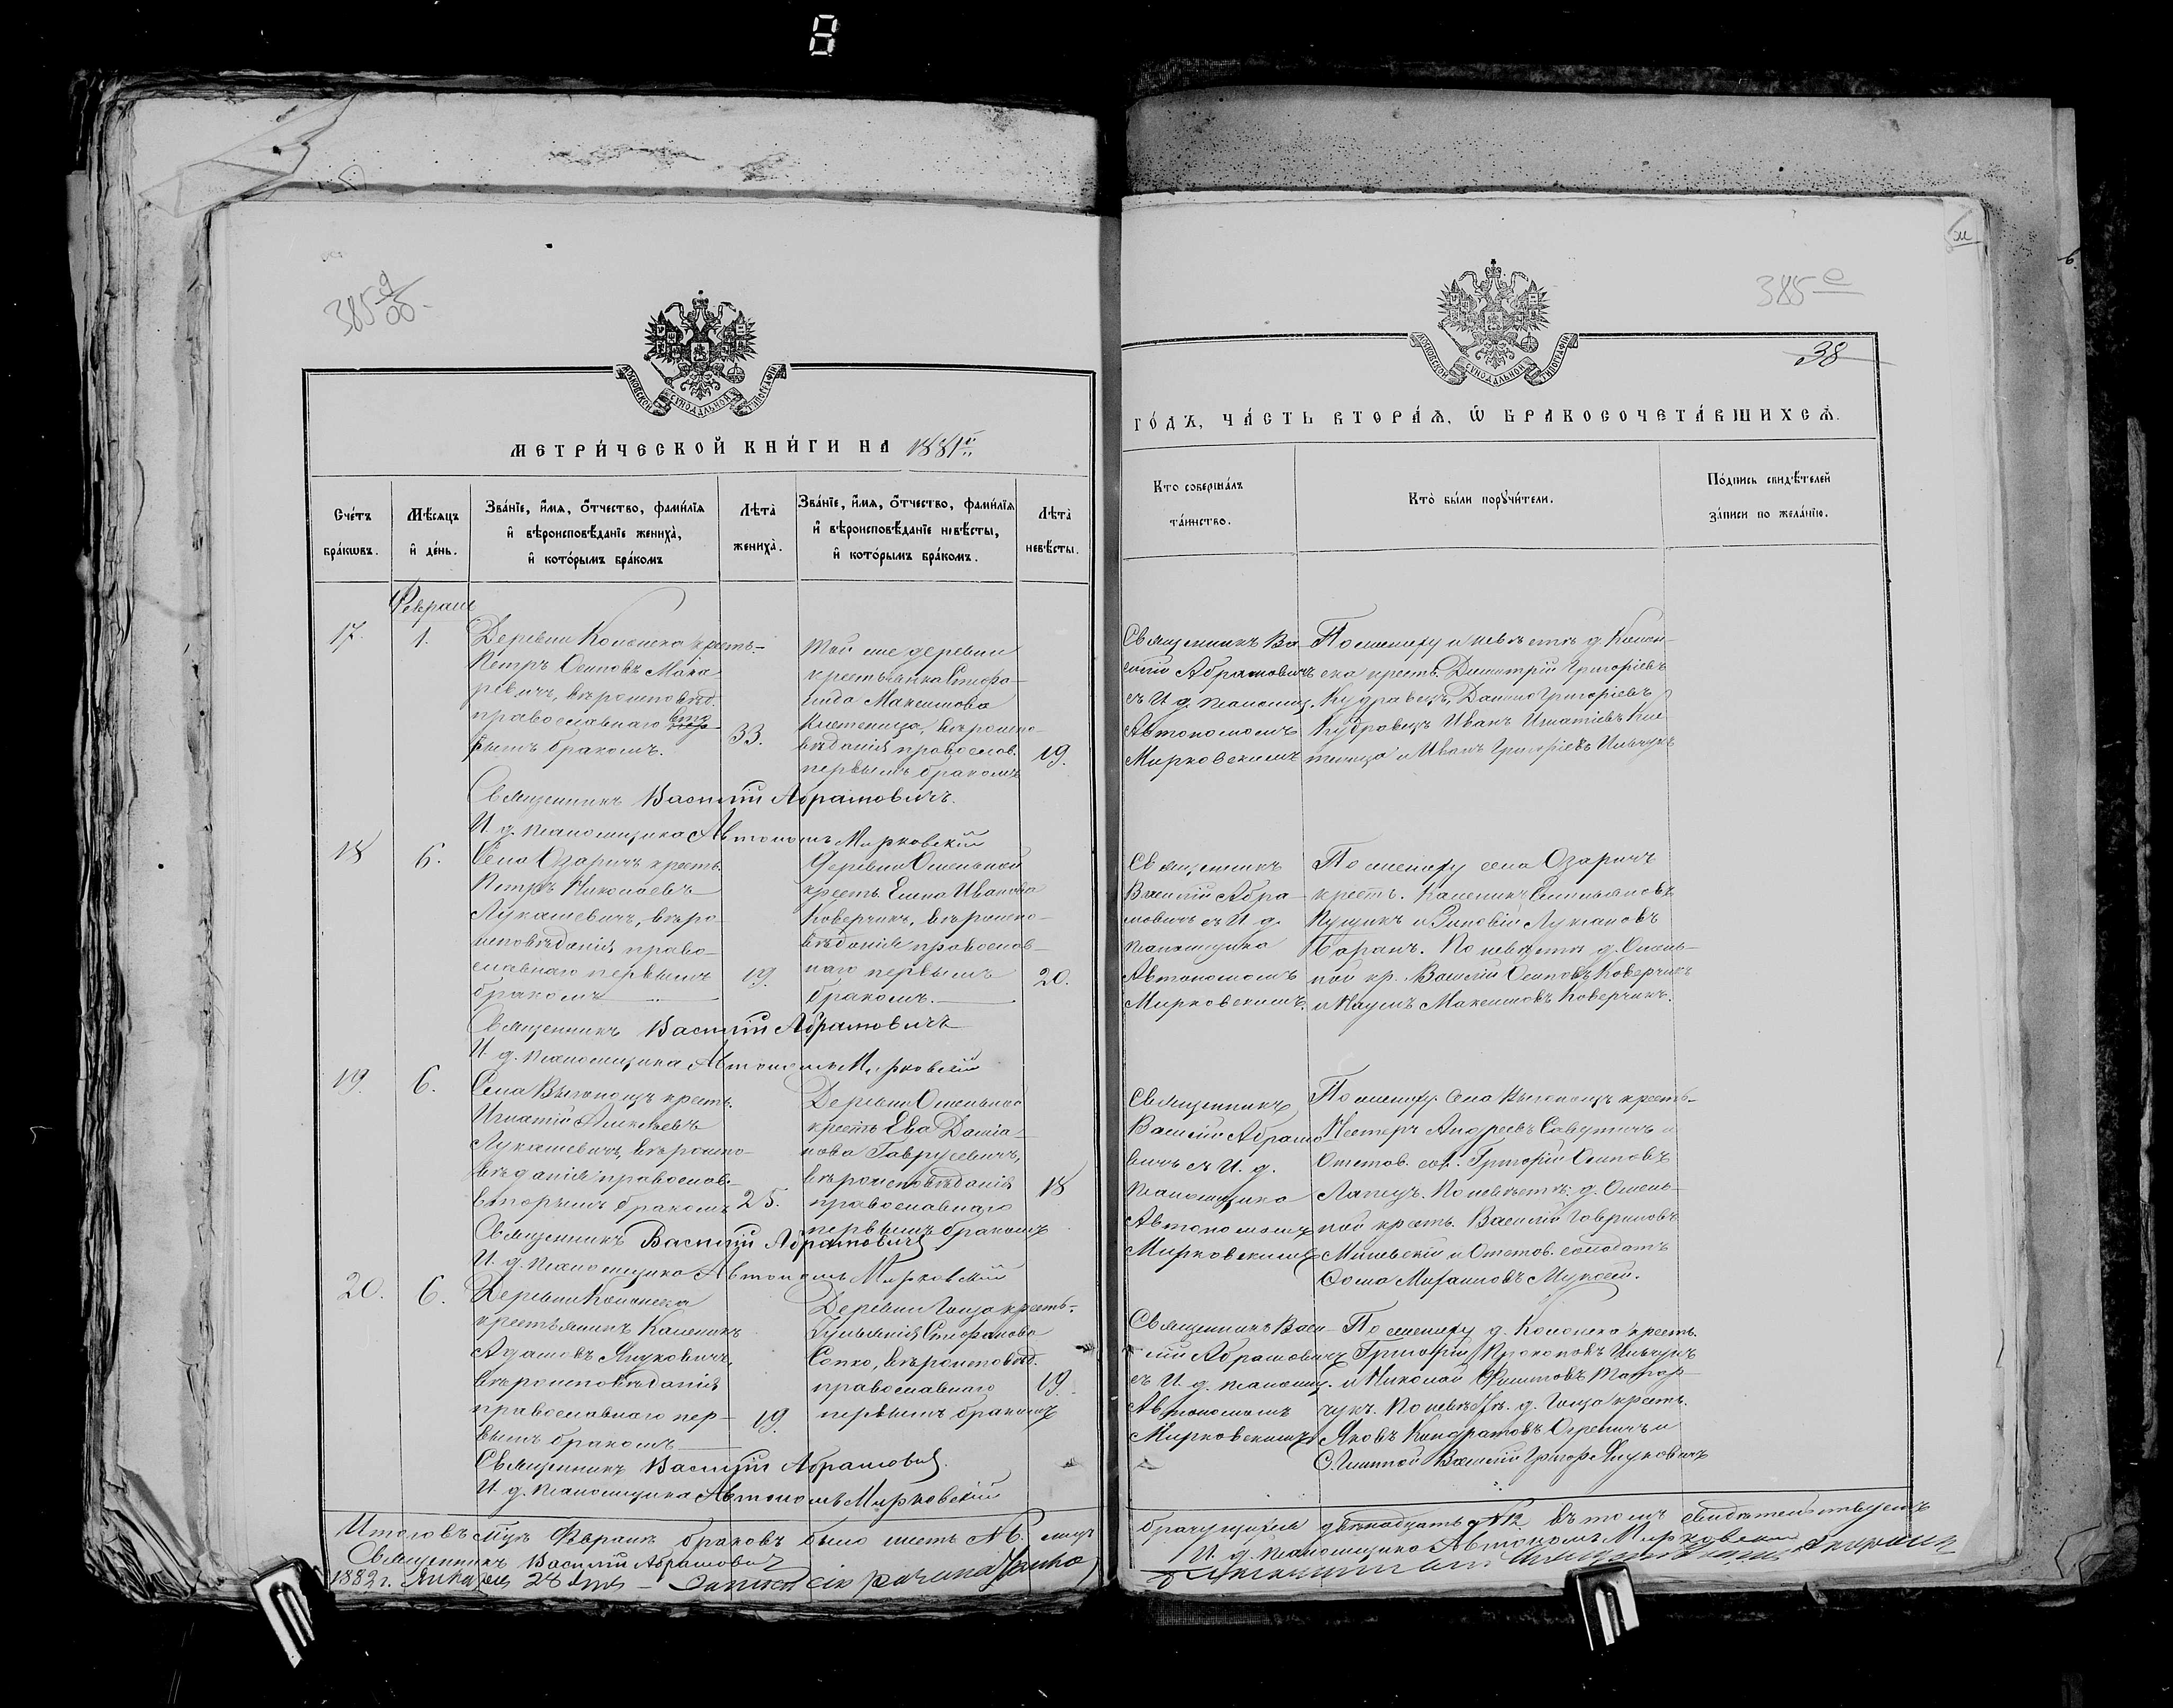 385
МОСКОВСКОЙ СѴНОДАЛЬНОЙ ТИПОГРАФІИ
МЕТРИ́ЧЕСКОЙ КНИ́ГИ НА 1881й
Сче́тъ бра́кωвъ.
Мѣ́сяцъ и҆ де́нь.
Зва́нїе, и҆́мя, о҆́тчество, фами́лїя и҆ вѣроисповѣ́данїе жениха̀, и҆ кото́рымъ бра́комъ
Лѣта̀ жениха̀.
Зва́нїе, и҆́мя, о҆́тчество, фами́лїя и҆ вѣроисповѣ́данїе невѣ́сты, и҆ кото́рымъ бра́комъ.
Лѣта̀ невѣ́сты.
Февраль
17. 1.
Деревни Колонска крестъ.
Петръ Осиповъ Мака
ревичъ, вѣроисповѣд.
православнаго вто
рымъ бракомъ.
33.
Той же деревни
крестьянка Стефа-
нида Максимова
вѣроиспо-
вѣданія православ.
первымъ бракомъ
19.
Священникъ Василій Абрамовичъ.
И. д. псаломщика Автономъ Мирковскій
18 6.
Села Озаричъ крестъ.
Петръ Николаевъ
Лукашевичъ, вѣро-
исповѣданія право-
славнаго первымъ
бракомъ
19.
Деревни Омельной
крестъ. Елена Иванова
Коверчикъ, вѣроиспо-
вѣданія православ-
наго первымъ
бракомъ.
20.
Священникъ Василій Абрамовичъ
И. д. псаломщика Автономъ Мирковскій
19. 6.
Села Выгонощъ крестъ.
Игнатій Алексѣевъ
Лукашевичъ, вѣроиспо-
вѣданія православ.
вторымъ бракомъ
25.
Деревни Омельной
крестъ Ева Даміа-
нова Гаврусевичъ,
вѣроисповѣданія
православнаго
первымъ бракомъ
18
Священникъ Василій Абрамовичъ
И. д. псаломщика Автономъ Мирковскій
20. 6.
Деревни Колонска
крестьянинъ Калиникъ
Адамовъ Януковичъ,
вѣроисповѣданія
православнаго пер-
вымъ бракомъ
19.
Деревни Гоща крестъ.
Іуліанія Стефанова
Сопко, вѣроисповѣд.
православнаго
первымъ бракомъ
19.
Священникъ Василій Абрамовичъ.
И. д. псаломщика Автономъ Мирковскій
Февралѣ браковъ было шесть №6. лицъ
Священникъ Василій Абрамовичъ
1882 г. Января 28 дня
385 е
38
МОСКОВСКОЙ СѴНОДАЛЬНОЙ ТИПОГРАФІИ
ГО́ДЪ, ЧА́СТЬ ВТОРА́Я, Ѽ БРАКОСОЧЕТА́ВШИХСЯ.
Кто соверша́лъ та́инство.
Кто̀ бы́ли порꙋчи́тели.
По́дпись свидѣ́телей за́писи по жела́нїю.
Священникъ Ва-
силій Абрамовичъ
съ И. д. псаломщ.
Автономомъ
Мирковскимъ
По жениху и невѣстѣ д. Колон-
ска крестъ. Димитрій Григоріевъ
Кудравецъ, Данило Григоріевъ
Кудравецъ Иванъ Игнатіевъ
и Иванъ Григоріевъ Ильчукъ
Священникъ
Василій Абра-
мовичъ съ И. д.
псаломщика
Автономомъ
Мирковскимъ.
По жениху села Озаричъ
крестъ. Калиникъ Емиліановъ
Пущикъ и Зиновій Лукіановъ
Баранъ. По невѣстѣ д. Омель-
ной кр. Василій Осиповъ Коверчикъ
и Наумъ Максимовъ Коверчикъ.
Священникъ
Василій Абрамо-
вичъ съ И. д.
псаломщика
Автономомъ
Мирковскимъ
По жениху села Выгонощъ крестъ-
Несторъ Андреевъ Савутичъ и
Отстов. сол. Григорій Осиповъ
Лапецъ. По невѣстѣ: д. Омель-
ной крестъ. Василій Гавриловъ
и Отстов. солдатъ
Ѳома Михаиловъ
Священникъ Васи-
лій Абрамовичъ
съ И. д. псаломщ.
Автономомъ
Мирковскимъ
По жениху д. Колонска крестъ.
Григорій Прокоповъ Ильчукъ
и Николай Филиповъ Татар-
чукъ. По невѣстѣ. д. Гоща крестъ.
Яковъ Кондратовъ Огреничъ и
Василій Григор. Януковичъ
двѣнадцать №12. въ томъ свидѣтельствуемъ
И. д. псаломщика Автономъ Мирковскій